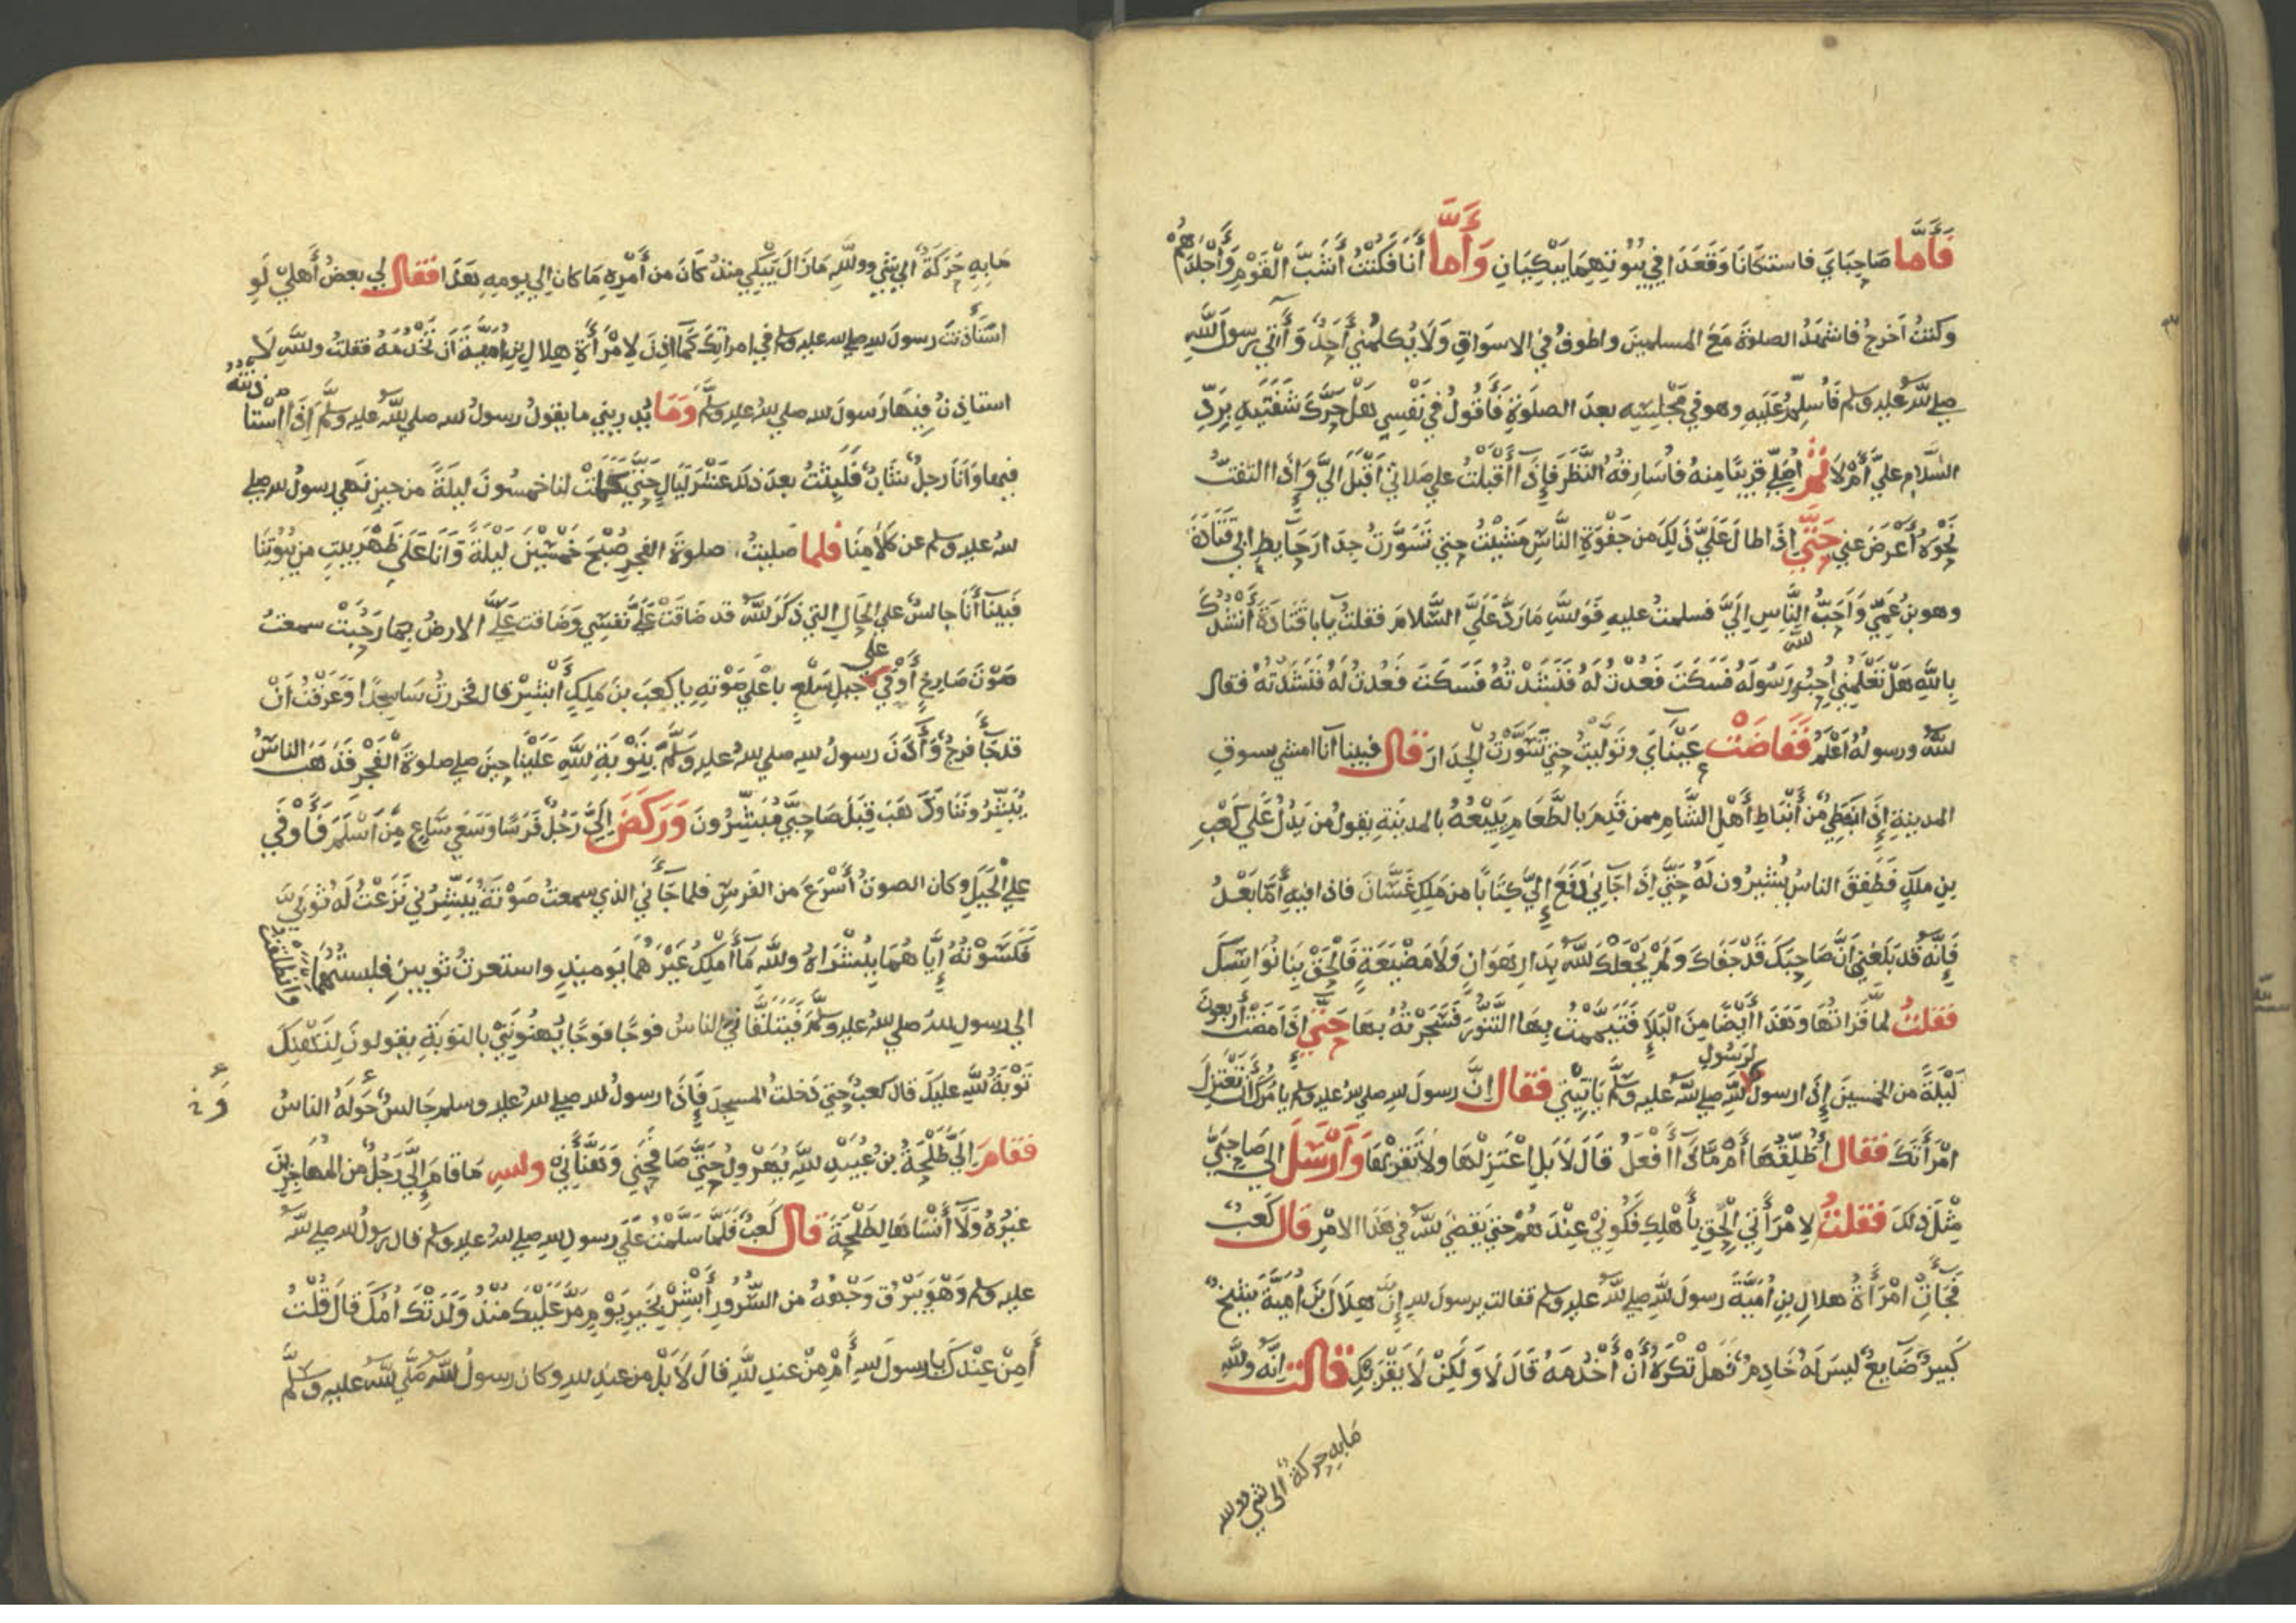 فَأَمَّا صَاحِبَايَ فاستكَانَا وَقَعَدَا فِي بُيُوتِهِمَا يَبْكِيَانِ وَأَمَّا أَنَا فَكُنْتُ أَشَبَّ الْقَوْمِ وَأَجْلَدَهُمْ
وكنتُ أخرجُ فاشهَدُ الصلوةَ مَعَ المسلمينَ واطوفُ في الاسواقِ وَلَا يُكلمُني أَحَدٌ وَآتي رسولَ اللهِ
صلى اللهُ عليه وسلم فَأُسلِّمُ عَلَيهِ وهو في مَجْلِسِه بعدَ الصلوةِ فَأَقُولُ في نَفْسِي هَلْ حَرَّكَ شَفَتَيهِ بِرَدِّ
السَّلامِ عليَّ أَمْ لَا ثم اُصَلِّي قريبًا منهُ فاُسَارِقهُ النَّظَرَ فإِذَا أَقْبَلْتُ على صَلاتي أَقْبَلَ اليَّ وَإِذَا التفتُّ
نَحْوَهُ أَعْرَضَ عني حَتَّى إذَا طَالَ عَلَيَّ ذَلِكَ من جَفْوَةِ النَّاسِ مَشَيْتُ حتى تَسَوَّرتُ جِدَارَ حَآيطِ ابي قَتَادَةَ
وهو بنُ عَمِّي وَأَحَبُّ النَّاسِ إِلَيَّ فسلمتُ عليهِ فَوَاللهِ مَا رَدَّ عَلَيَّ السَّلامَ فقلتُ يابا قَتَادَةَ أَنْشُدُكَ
بِاللهِ هَلْ تَعْلَمُني أُحِبُّ الله وَرَسُولَهُ فَسَكَتَ فَعُدْتُ لَهُ فَنَشَدْتهُ فَسَكَتَ فَعُدتُ لَهُ فَنَشَدْتهُ فقال
اللهُ ورسولُهُ أَعْلَمُ فَفَاضَتْ عَيْنَايَ وتَوَلَّيتُ حتى تَسَوَّرْتُ الْجِدَارَ قال فبينا أنا امشي بسوقِ
المدينةِ إِذَا نَبَطِيٌّ من أَنْبَاطِ أَهْلِ الشَّامِ ممن قَدِمَ بالطَّعَامِ يَبِيْعُهُ بالمدينةِ يقولُ مَن يَدُلُّ عَلَى كَعْبِ
بنِ ملكٍ فَطَفِقَ الناسُ يُشيرُونَ لَهُ حَتَّى إِذَا جَآنِي دَفَعَ إِلَيَّ كِتَابًا من مَلِكِ غَسَّانَ فاذا فيهِ أَمَّا بَعْدُ
فَإِنَّهُ قَد بَلَغَنِي أَنَّ صَاحِبَكَ قَدْ جَفَاكَ وَلَمْ يَجْعَلْكَ اللهُ بِدَارِ هَوَانٍ وَلَا مَضْيَعَةٍ فَالْحَقْ بِنَا نُوَاسِكَ
فقلتُ لمَّا قَرَاتُهَا وَهَذَا أَيْضًا مِنَ الْبَلَاءِ فَتَيَمَّمْتُ بِهَا التَّنُّورَ فَسَجَرْتهُ بهَا حَتَّى إِذَا مَضَتْ أَربعونَ
لَيْلَةً من الخمسينَ إِذَا رسولٌ لرسُولِ اللهِ صلى اللهُ عليه وسلَّم يَاتِينِي فقال إنَّ رسولَ اللهِ صلى الله عليه وسلم يامُرُكَ أَنْ تَعْتَزِلَ
امْرَأَتَكَ فقال أُطَلِّقُهَا أَمْ مَاذَا أَفْعَلُ قَالَ لَا بَلِ اعْتَزِلْهَا ولا تَقْرَبْهَا وَأَرْسَلَ إلى صَاحِبَيَّ
مِثْلَ ذلِكَ فقلتُ لِامْرَأَتي الْحَقِي بِأَهْلِكِ فَكُونِي عِنْدَهُمْ حتى يَقضيَ اللهُ في هَذَا الامْرِ قال كَعبٌ
فَجَآتِ امْرَأَةُ هلالِ بنِ أُمَيَّةَ رسولَ اللهِ صلى اللهُ عليه وسلم فقالت يرسولَ اللهِ إِنَّ هِلَالَ بنَ أُمَيَّةَ شَيْخٌ
كَبيرٌ ضَايعٌ ليسَ لهُ خَادِمٌ فَهَلْ تكْرَهُ أَنْ أَخْدُمَهُ قَالَ لَا وَلَكِنْ لَا يَقْرَبْكِ قالت إنَّهُ واللهِ
مَا بِهِ حركةٌ الى شي ووالله
مَا بِهِ حَرَكَةٌ الى شَيْ ووَاللهِ مَا زَالَ يَبْكِي منذُ كَانَ من أَمْرِهِ مَا كان الى يومِهِ هَذَا فقال لي بعضُ أَهلِي لَوِ
اسْتَأْذَنْتَ رسولَ اللهِ صلى الله عليه وسلم في امراتِكَ كَمَا أَذِنَ لامْرَأَةِ هلالِ بنِ أُمَيَّةَ أَن تَخْدُمَهُ فقلتُ واللهِ لَا
استاذِنُ فِيهَا رَسولَ الله صلى اللهُ عليه وسلَّم وَمَا يُدرِيني ما يقولُ رسولُ الله صلى اللهُ عليه وسلَّم إِذَا اسْتا ذنته
فيها وَأَنَا رَجلٌ شَابٌّ فَلَبِثْتُ بعدَ ذلكَ عَشْرَ لَيَالٍ حَتَّى كَمَلَتْ لنا خمسُونَ ليلَةً من حينِ نَهَى رسولُ الله صلى
اللهُ عليه وسلم عن كَلَامِنَا فلما صليتُ صلوةَ الفجرِ صُبْحَ خَمْسِيْنَ لَيْلَةً وَأَنَا عَلَى ظَهْرِ بيتٍ من بُيُوتِنَا
فَبَيْنَا أَنَا جالسٌ على الحَالِ التي ذكَرَ اللهُ قد ضَاقَتْ عَلَيَّ نَفْسِي وَضَاقت عَلَيَّ الارضُ بِمَا رَحُبَتْ سمعتُ
صَوْتَ صَارِخٍ أَوْفَى على جَبلِ سَلْعٍ باعْلَى صَوْتِهِ يا كعبَ بنَ مَلِكٍ أَبْشِرْ قال فخررتُ سَاجِدًا وَعَرَفْتُ أَنْ
قد جَآ فرجٌ وَأَذنَ رسولُ اللهِ صلى اللهُ عليه وسلَّم بِتَوْبَةِ اللهِ عَلَيْنَا حِينَ صلى صلوةَ الْفَجْرِ فذهبَ الناسُ
يُبَشِّرُونَنَا وَذَهَبَ قِبَلَ صَاحِبَيَّ مُبَشِّرُونَ وَرَكَضَ إِلَيَّ رَجُلٌ فَرَسًا وَسَعَى سَاعٍ مِّنْ أَسْلَمَ فَأَوْفَى
على الْجَبَلِ وكان الصوتُ أَسْرَعَ من الفَرسِ فلما جَآنى الذي سمعتُ صَوْتَهُ يُبَشِّرُني نَزَعْتُ لَهُ ثَوْبَيَّ
فَكَسَوْتُهُ إِيَّاهُمَا بِبُشْرَاهُ واللهِ مَا أَمْلِكُ غَيْرَهُمَا يَومَيذٍ واستعرتُ ثوبينِ فلبستُهُمَا وانطلقتُ
الى رسولِ اللهِ صلى اللهُ عليه وسلَّم فَيَتَلَقَّانِي الناسُ فوجًا فوجًا يُهَنُّونَنِي بالتوبَةِ يقولونَ لِتَهْنِكَ
تَوْبَةُ اللهِ عليكَ قال كعبٌ حتى دَخلتُ المسجِدَ فَإِذَا رسولُ الله صلى اللهُ عليه وسلم جَالسٌ حَولَهُ الناسُ
فقامَ إِلَيَّ طَلْحَةُ بنُ عُبَيْدِ اللهِ يُهَرْوِلُ حَتَّى صَافَحَنِي وَهَنَّأَنِي والله مَا قامَ إِلَيَّ رَجُلٌ من المهاجِرينَ
غيرُهُ وَلَا أَنْسَاهَا لِطَلْحَةَ قال كَعبٌ فَلَمَّا سَلَّمْتُ عَلَى رسولِ اللهِ صلى اللهُ عليه وسلم قال رسولُ الله صلى اللهُ
عليه وسلم وَهْوَ يَبْرُقُ وَجْهُهُ من السُّرُورِ أَبْشِرْ بِخَيرِ يَوْمٍ مَرَّ عَلَيْكَ مُنْذُ وَلَدَتْكَ أُمُّكَ قَالَ قُلْتُ
أَمِنْ عِنْدِكَ يا رسولَ اللهِ أَمْ مِنْ عندِ اللهِ قالَ لَا بَلْ من عندِ اللهِ وكان رسولُ اللهِ صَلَّى اللهُ عليهِ وسَلَّم